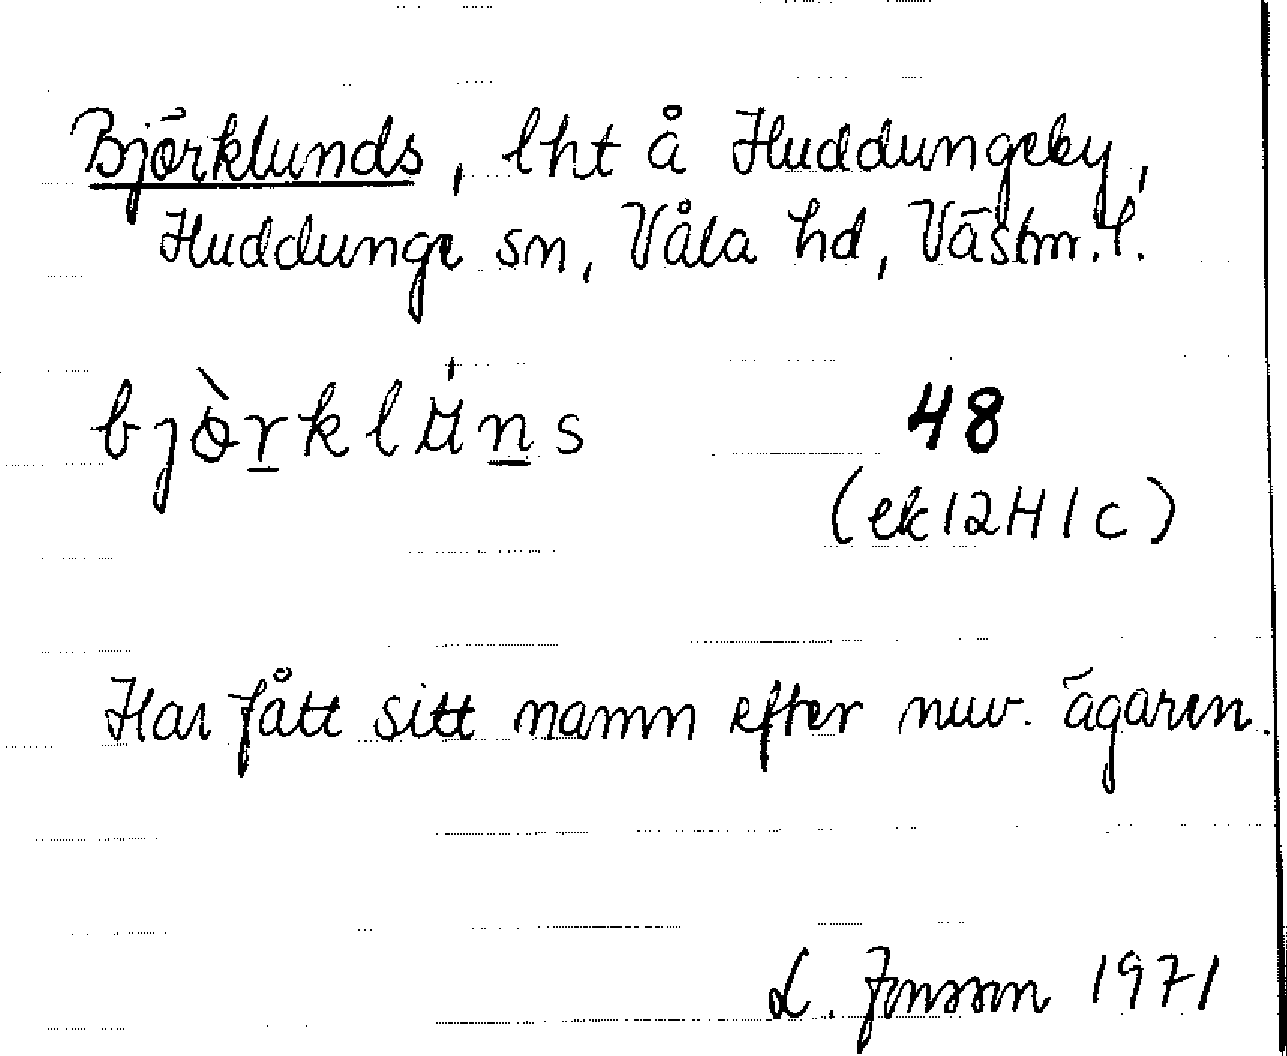 Björklunds, lht å Huddungeby,
Huddunge sn, Våla hd, Västm. l.
bjòrkluns 48
(ek12H1c)
Har fått sitt namn efter nuv. ägaren.
L. Jonsson 1971